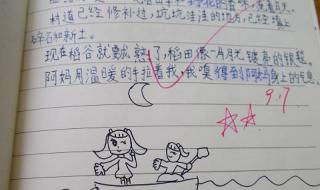 村道已经修补过,坑坑洼洼的地方,已经填上
碎石和新土。
现在稻谷就要成熟了,稻田像一月光镀亮的银毯
阿妈用温暖的手拉着我,我嗅得到阿妈身上的气息
9.17